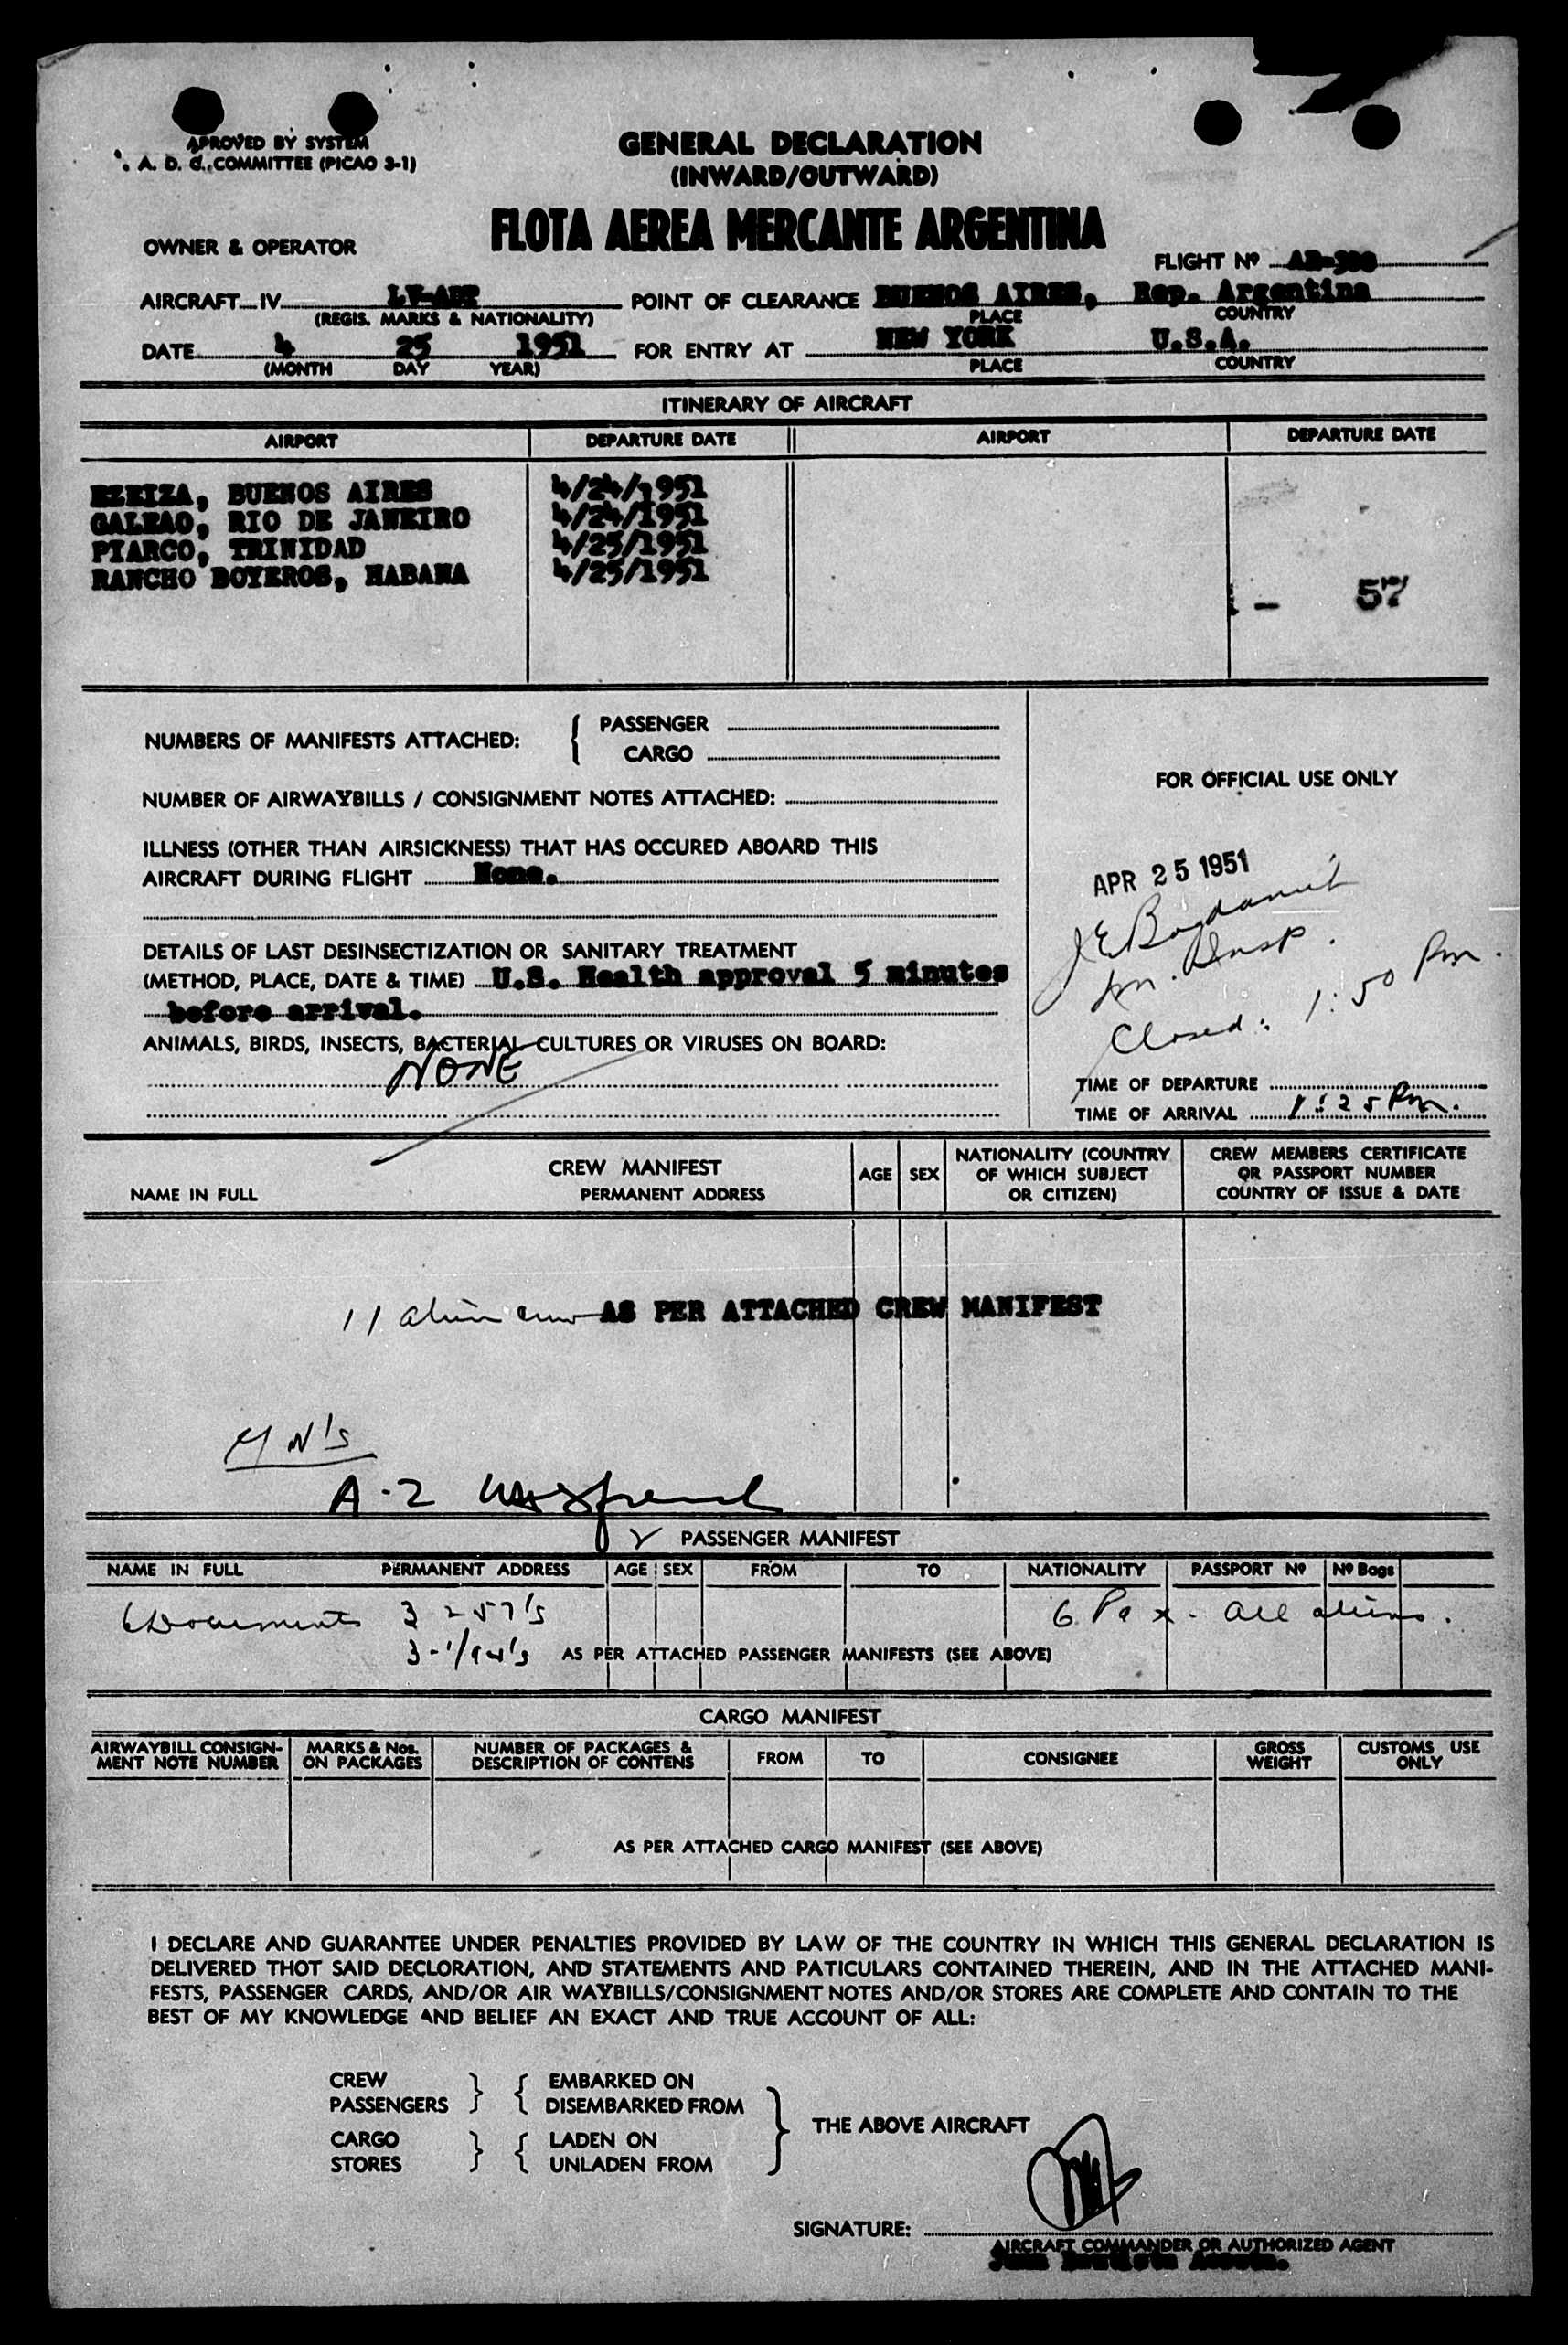 APROVED BY SYSTEM
A. D. C. COMMITTEE (PICAO 3-1)
GENERAL DECLARATION
(INWARD/OUTWARD)
FLOTA AEREA MERCANTE ARGENTINA
OWNER & OPERATOR
FLIGHT Nº
AIRCRAFT IV POINT OF CLEARANCE BUENOS AIRES, Rep. Argentina
(REGIS. MARKS & NATIONALITY) PLACE COUNTRY
DATE 4 25 1951 FOR ENTRY AT NEW YORK U.S.A.
(MONTH DAY YEAR) PLACE COUNTRY
ITINERARY OF AIRCRAFT
AIRPORT DEPARTURE DATE AIRPORT DEPARTURE DATE
EZEIZA, BUENOS AIRES 4/24/1951
GALEAO, RIO DE JANEIRO 4/24/1951
PIARCO, TRINIDAD 4/25/1951
RANCHO BOYEROS, HABANA 4/25/1951
- 57
NUMBERS OF MANIFESTS ATTACHED: { PASSENGER
CARGO
FOR OFFICIAL USE ONLY
NUMBER OF AIRWAYBILLS / CONSIGNMENT NOTES ATTACHED:
ILLNESS (OTHER THAN AIRSICKNESS) THAT HAS OCCURED ABOARD THIS
AIRCRAFT DURING FLIGHT None.
APR 25 1951
Insp.
Closed: 1:50 Pm.
DETAILS OF LAST DESINSECTIZATION OR SANITARY TREATMENT
(METHOD, PLACE, DATE & TIME) U.S. Health approval 5 minutes
before arrival.
ANIMALS, BIRDS, INSECTS, BACTERIAL CULTURES OR VIRUSES ON BOARD:
NONE
TIME OF DEPARTURE
TIME OF ARRIVAL 1:25 Pm.
CREW MANIFEST
NAME IN FULL PERMANENT ADDRESS AGE SEX NATIONALITY (COUNTRY OF WHICH SUBJECT OR CITIZEN) CREW MEMBERS CERTIFICATE OR PASSPORT NUMBER COUNTRY OF ISSUE & DATE
11 alien crew AS PER ATTACHED CREW MANIFEST
N's
A-2
PASSENGER MANIFEST
NAME IN FULL PERMANENT ADDRESS AGE SEX FROM TO NATIONALITY PASSPORT Nº Nº Bags
6 Documents 3 257's 6 Pax - all aliens.
3- AS PER ATTACHED PASSENGER MANIFESTS (SEE ABOVE)
CARGO MANIFEST
AIRWAYBILL CONSIGN-MENT NOTE NUMBER MARKS & Nos. ON PACKAGES NUMBER OF PACKAGES & DESCRIPTION OF CONTENS FROM TO CONSIGNEE GROSS WEIGHT CUSTOMS USE ONLY
AS PER ATTACHED CARGO MANIFEST (SEE ABOVE)
I DECLARE AND GUARANTEE UNDER PENALTIES PROVIDED BY LAW OF THE COUNTRY IN WHICH THIS GENERAL DECLARATION IS
DELIVERED THOT SAID DECLORATION, AND STATEMENTS AND PATICULARS CONTAINED THEREIN, AND IN THE ATTACHED MANI-
FESTS, PASSENGER CARDS, AND/OR AIR WAYBILLS/CONSIGNMENT NOTES AND/OR STORES ARE COMPLETE AND CONTAIN TO THE
BEST OF MY KNOWLEDGE AND BELIEF AN EXACT AND TRUE ACCOUNT OF ALL:
CREW } { EMBARKED ON
PASSENGERS DISEMBARKED FROM
} THE ABOVE AIRCRAFT
CARGO } { LADEN ON
STORES UNLADEN FROM
SIGNATURE:
AIRCRAFT COMMANDER OR AUTHORIZED AGENT